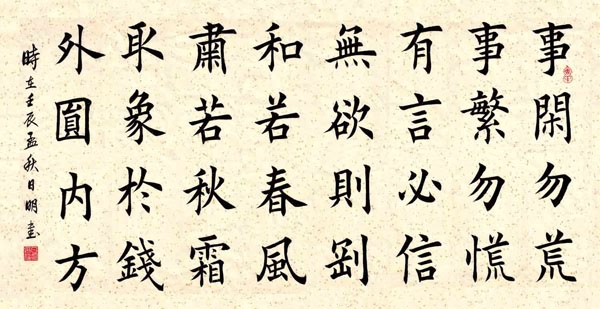 事閑勿荒
事繁勿慌
有言必信
無欲則剛
和若春風
肅若秋霜
取象於錢
外圓内方
時在壬辰孟秋日明書